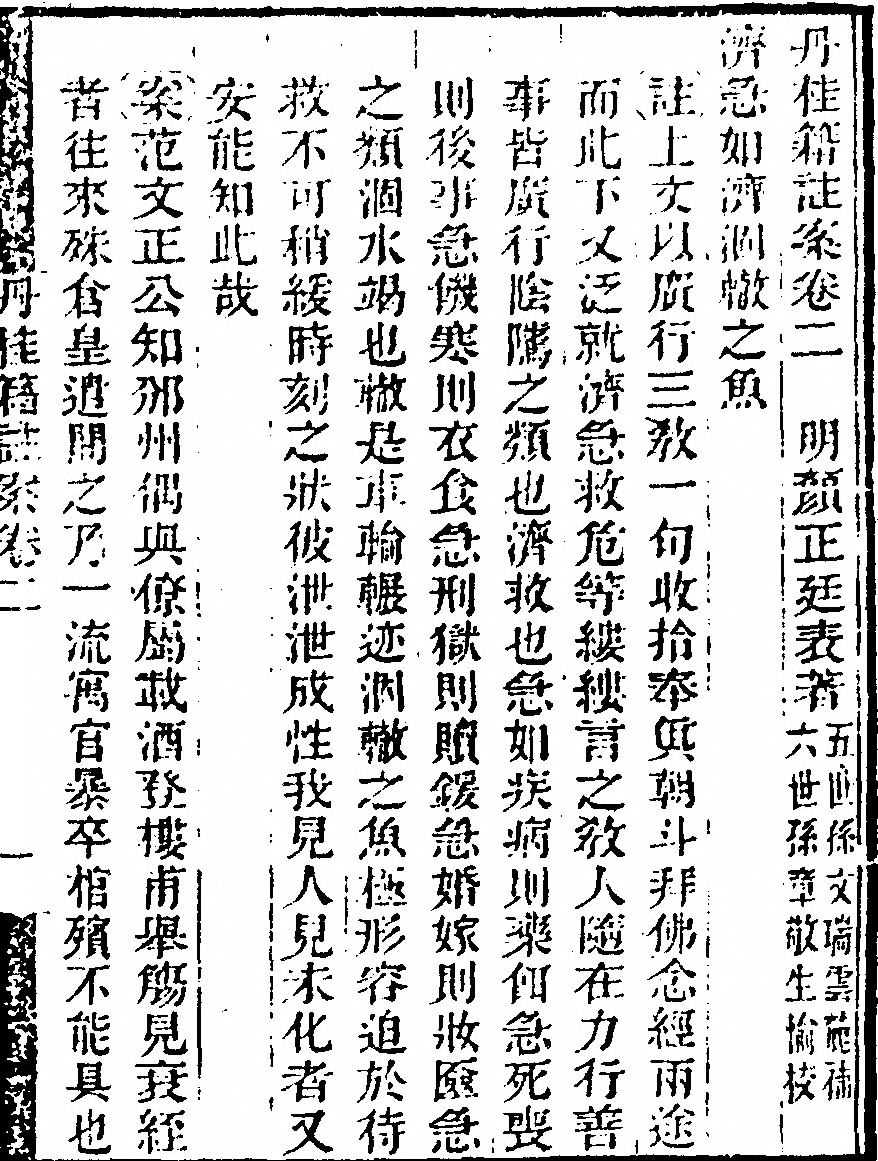 丹桂籍註案卷二　明顏正廷表著 五世孫文瑞雲葹補 六世孫章敬生愉校
濟急如濟涸轍之魚
註上文以廣行三敎一句收拾奉眞朝斗拜佛念經兩途
而此下又泛就濟急救危等縷縷言之敎人隨在力行善
事皆廣行陰隲之類也濟救也急如疾病則藥餌急死喪
則後事急饑寒則衣食急刑獄則贖鍰急婚嫁則妝匳急
之類涸水竭也轍是車輪輾迹涸轍之魚極形容迫於待
救不可稍緩時刻之狀彼泄泄成性我見人見未化者又
安能知此哉
案范文正公知邠州偶與僚屬載酒登樓甫舉觴見衰絰
者往來殊倉皇遣問之乃一流寓官暴卒棺殯不能具也
丹桂籍註案卷二　一